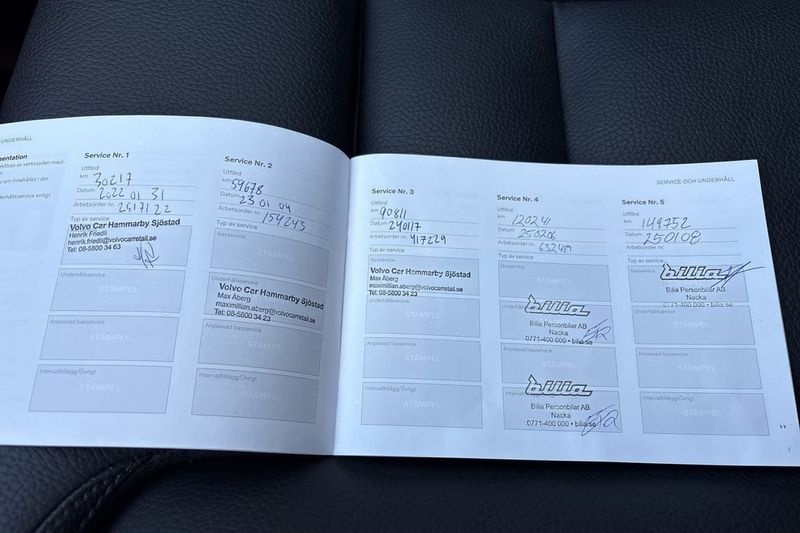 UNDERHÅLL
entation
Service Nr. 1
Utförd
km 30217
Datum 2022 01 31
Arbetsorder nr. 2517122
Typ av service
Volvo Car Hammarby Sjöstad
Henrik Friedli
henrik.friedli@volvocarretail.se
Tel: 08-5800 34 63
Underhållsservice
STÄMPEL
Anpassad basservice
STÄMPEL
Intervalltillägg/Övrigt
STÄMPEL
Service Nr. 2
Utförd
km 59678
Datum 23 01 04
Arbetsorder nr. 154245
Typ av service
Basservice
STÄMPEL
Underhållsservice
Volvo Car Hammarby Sjöstad
Max Åberg
maximillian.aberg@volvocarretail.se
Tel: 08-5800 34 23
Anpassad basservice
STÄMPEL
Intervalltillägg/Övrigt
STÄMPEL
SERVICE OCH UNDERHÅLL
Service Nr. 3
Utförd
km 90811
Datum 240117
Arbetsorder nr. 417229
Typ av service
Volvo Car Hammarby Sjöstad
Max Åberg
maximillian.aberg@volvocarretail.se
Tel: 08-5800 34 23
Underhållsservice
STÄMPEL
Anpassad basservice
STÄMPEL
Intervalltillägg/Övrigt
STÄMPEL
Service Nr. 4
Utförd
km 120241
Datum 250206
Arbetsorder nr.
Typ av service
Basservice
STÄMPEL
Underhållsservice
bilia
Bilia Personbilar AB
Nacka
0771-400 000 • bilia.se
Anpassad basservice
STÄMPEL
bilia
Bilia Personbilar AB
Nacka
0771-400 000 • bilia.se
Service Nr. 5
Utförd
km 149752
Datum 250108
Arbetsorder nr.
Typ av service
Basservice
bilia
Bilia Personbilar AB
Nacka
0771-400 000 • bilia.se
Underhållsservice
STÄMPEL
Anpassad basservice
STÄMPEL
Intervalltillägg/Övrigt
STÄMPEL
7